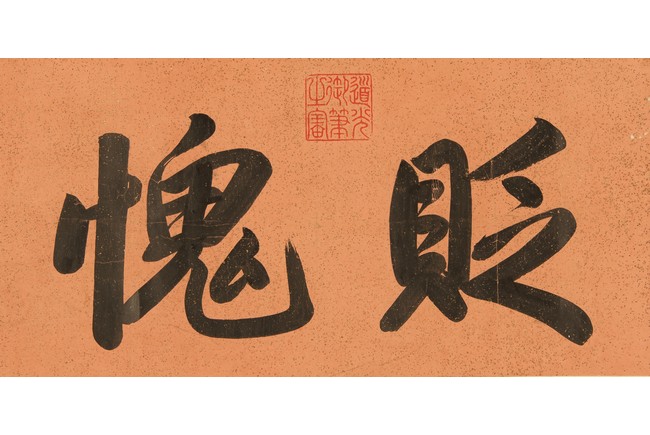 貶愧
道光
御筆
之寶